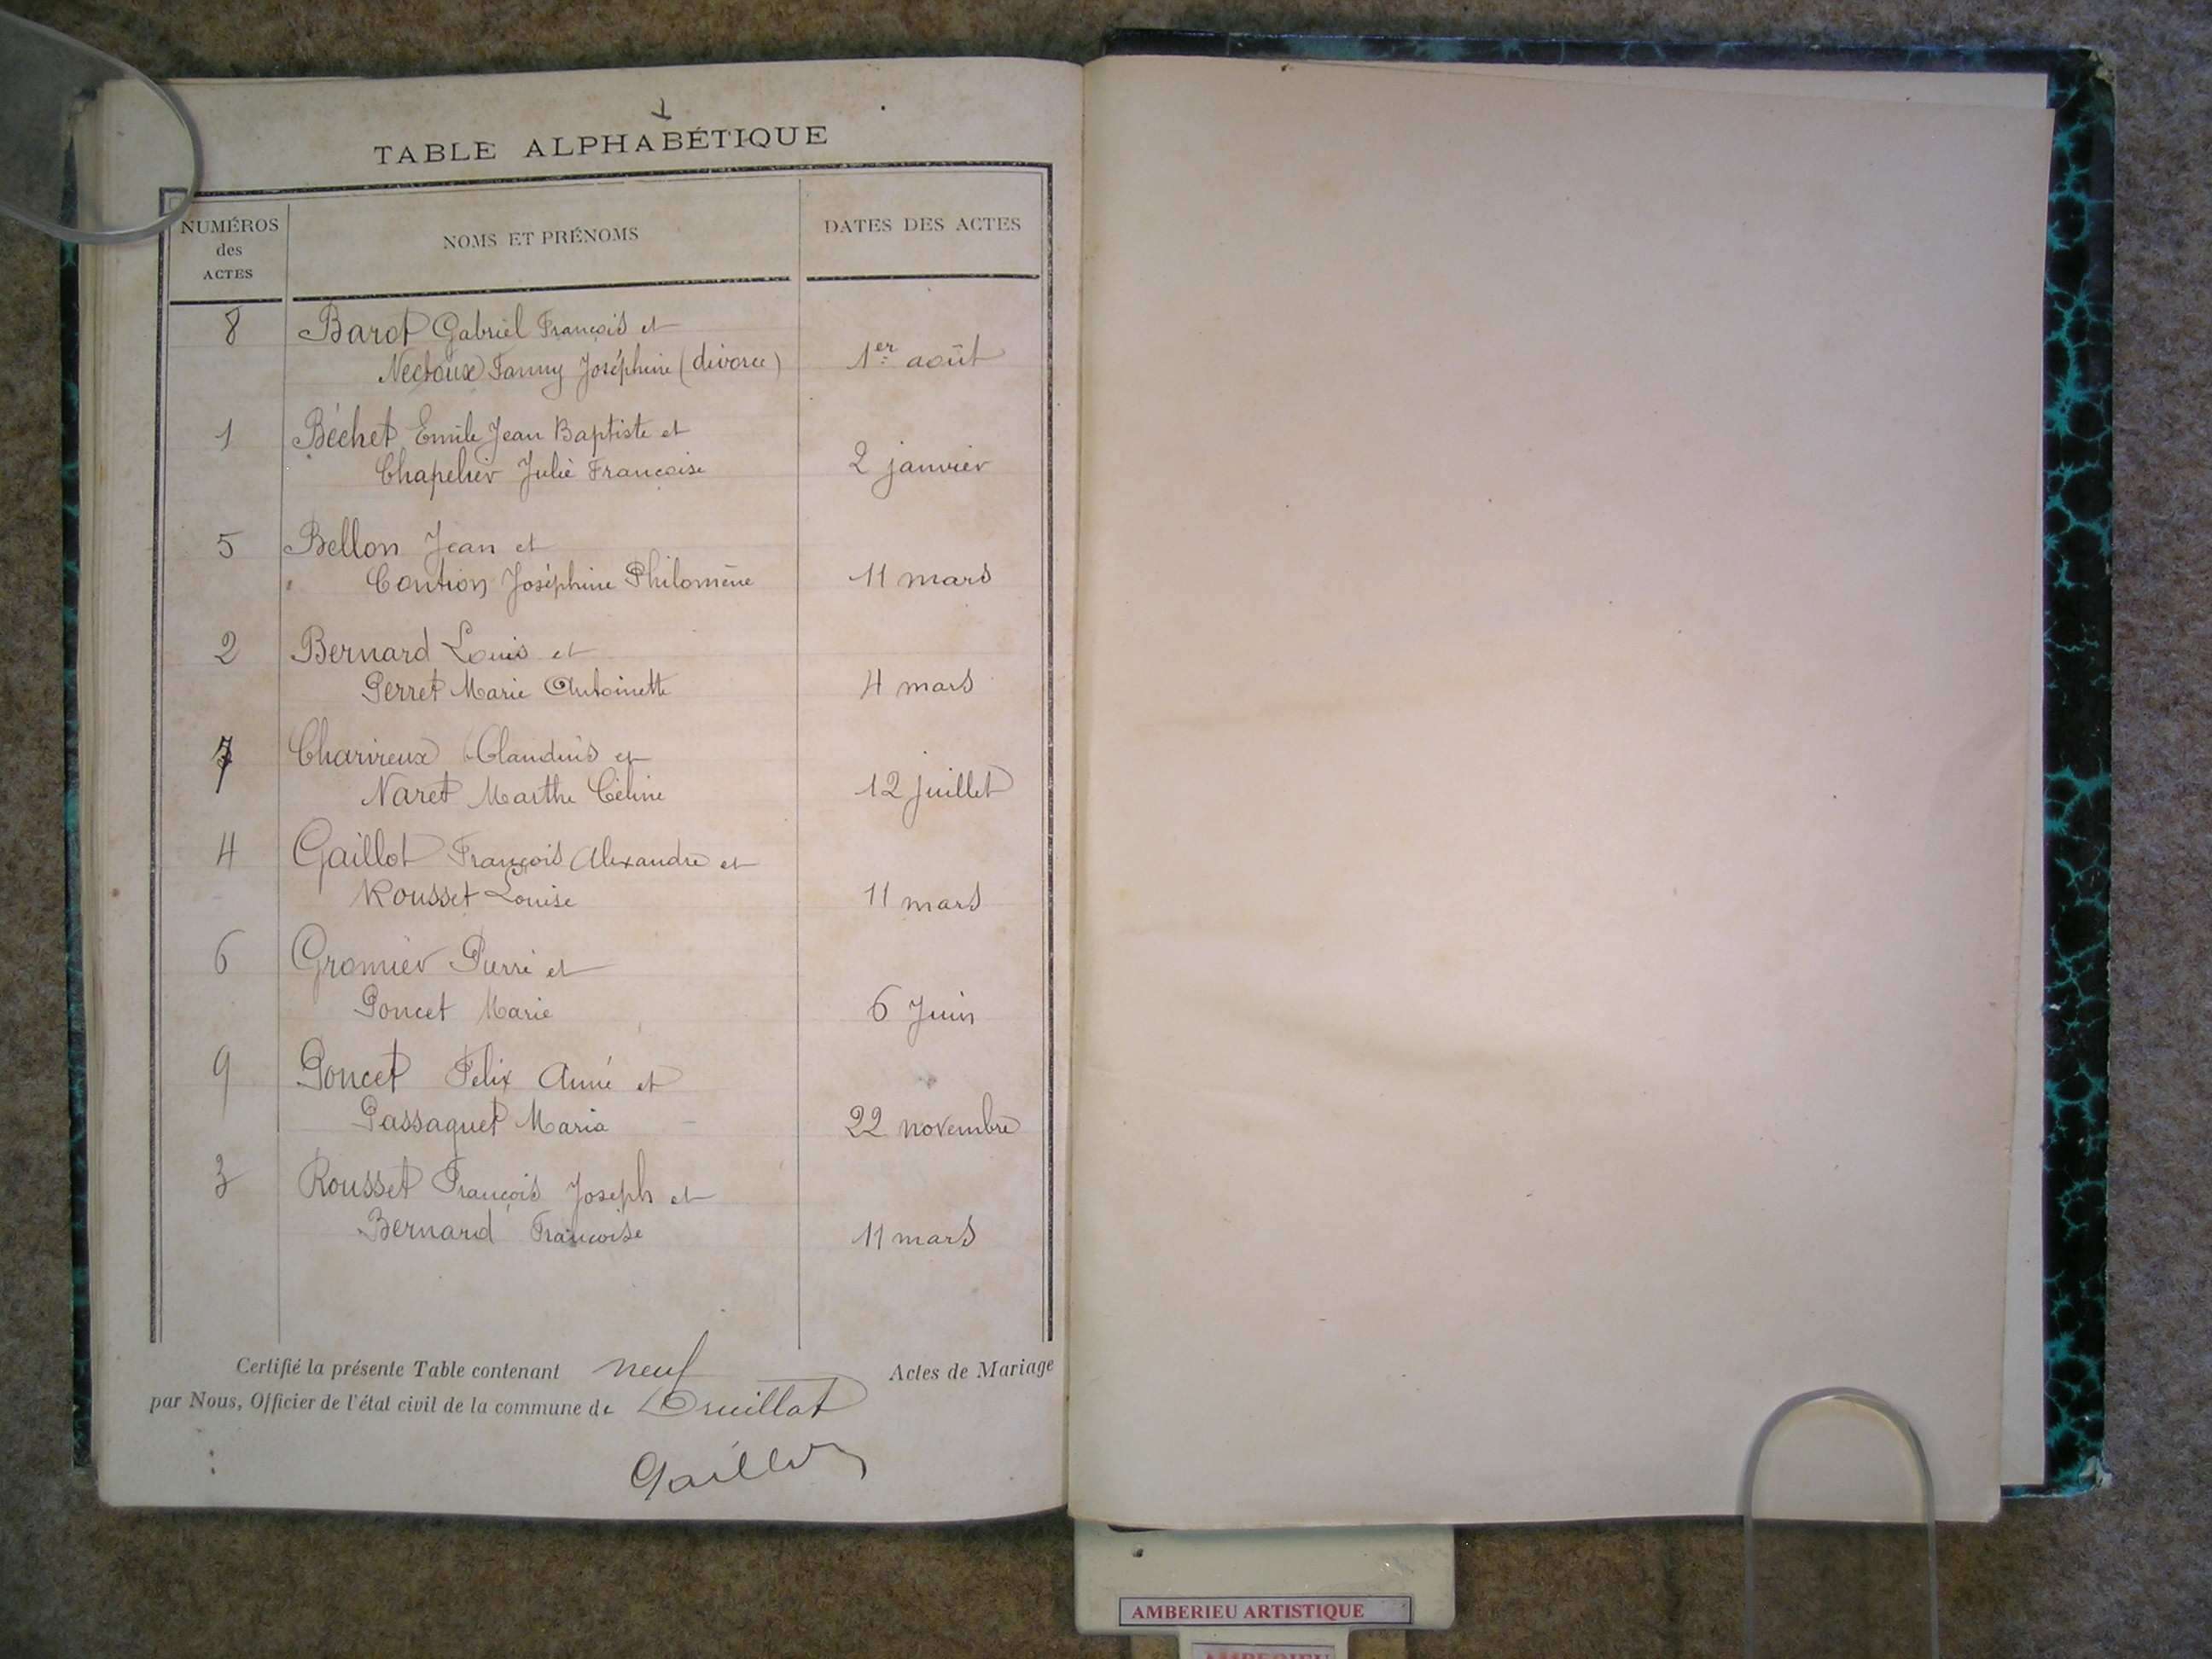 TABLE ALPHABÉTIQUE
NUMÉROS
des
ACTES
NOMS ET PRÉNOMS
DATES DES ACTES
8 Barot Gabriel François et
Nectoux Fanny Joséphine (divorce) 1er août
1 Béchet Emile Jean Baptiste et
Chapelier Julie Francoise 2 janvier
5 Bellon Jean et
Contion Joséphine Philomène 11 mars
2 Bernard Louis et
Perret Marie Antoinette 4 mars
7 Charvieux Claudius et
Naret Marthe Céline 12 juillet
4 Gaillot François Alexandre et
Rousset Louise 11 mars
6 Gromier Pierre et
Poncet Marie 6 Juin
9 Poncet Felix Aimé et
Passaquet Maria 22 novembre
3 Rousset François Joseph et
Bernard Françoise 11 mars
Certifié la présente Table contenant neuf Actes de Mariage
par Nous, Officier de l'état civil de la commune de Druillat
Gaillot
AMBERIEU ARTISTIQUE
AMBERIEU